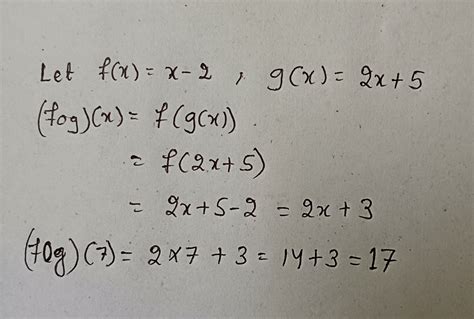 Let f(x) = x-2 , g(x) = 2x+5
(fog)(x) = f(g(x))
= f(2x+5)
= 2x+5-2 = 2x+3
(fog)(7) = 2×7 +3 = 14+3 = 17